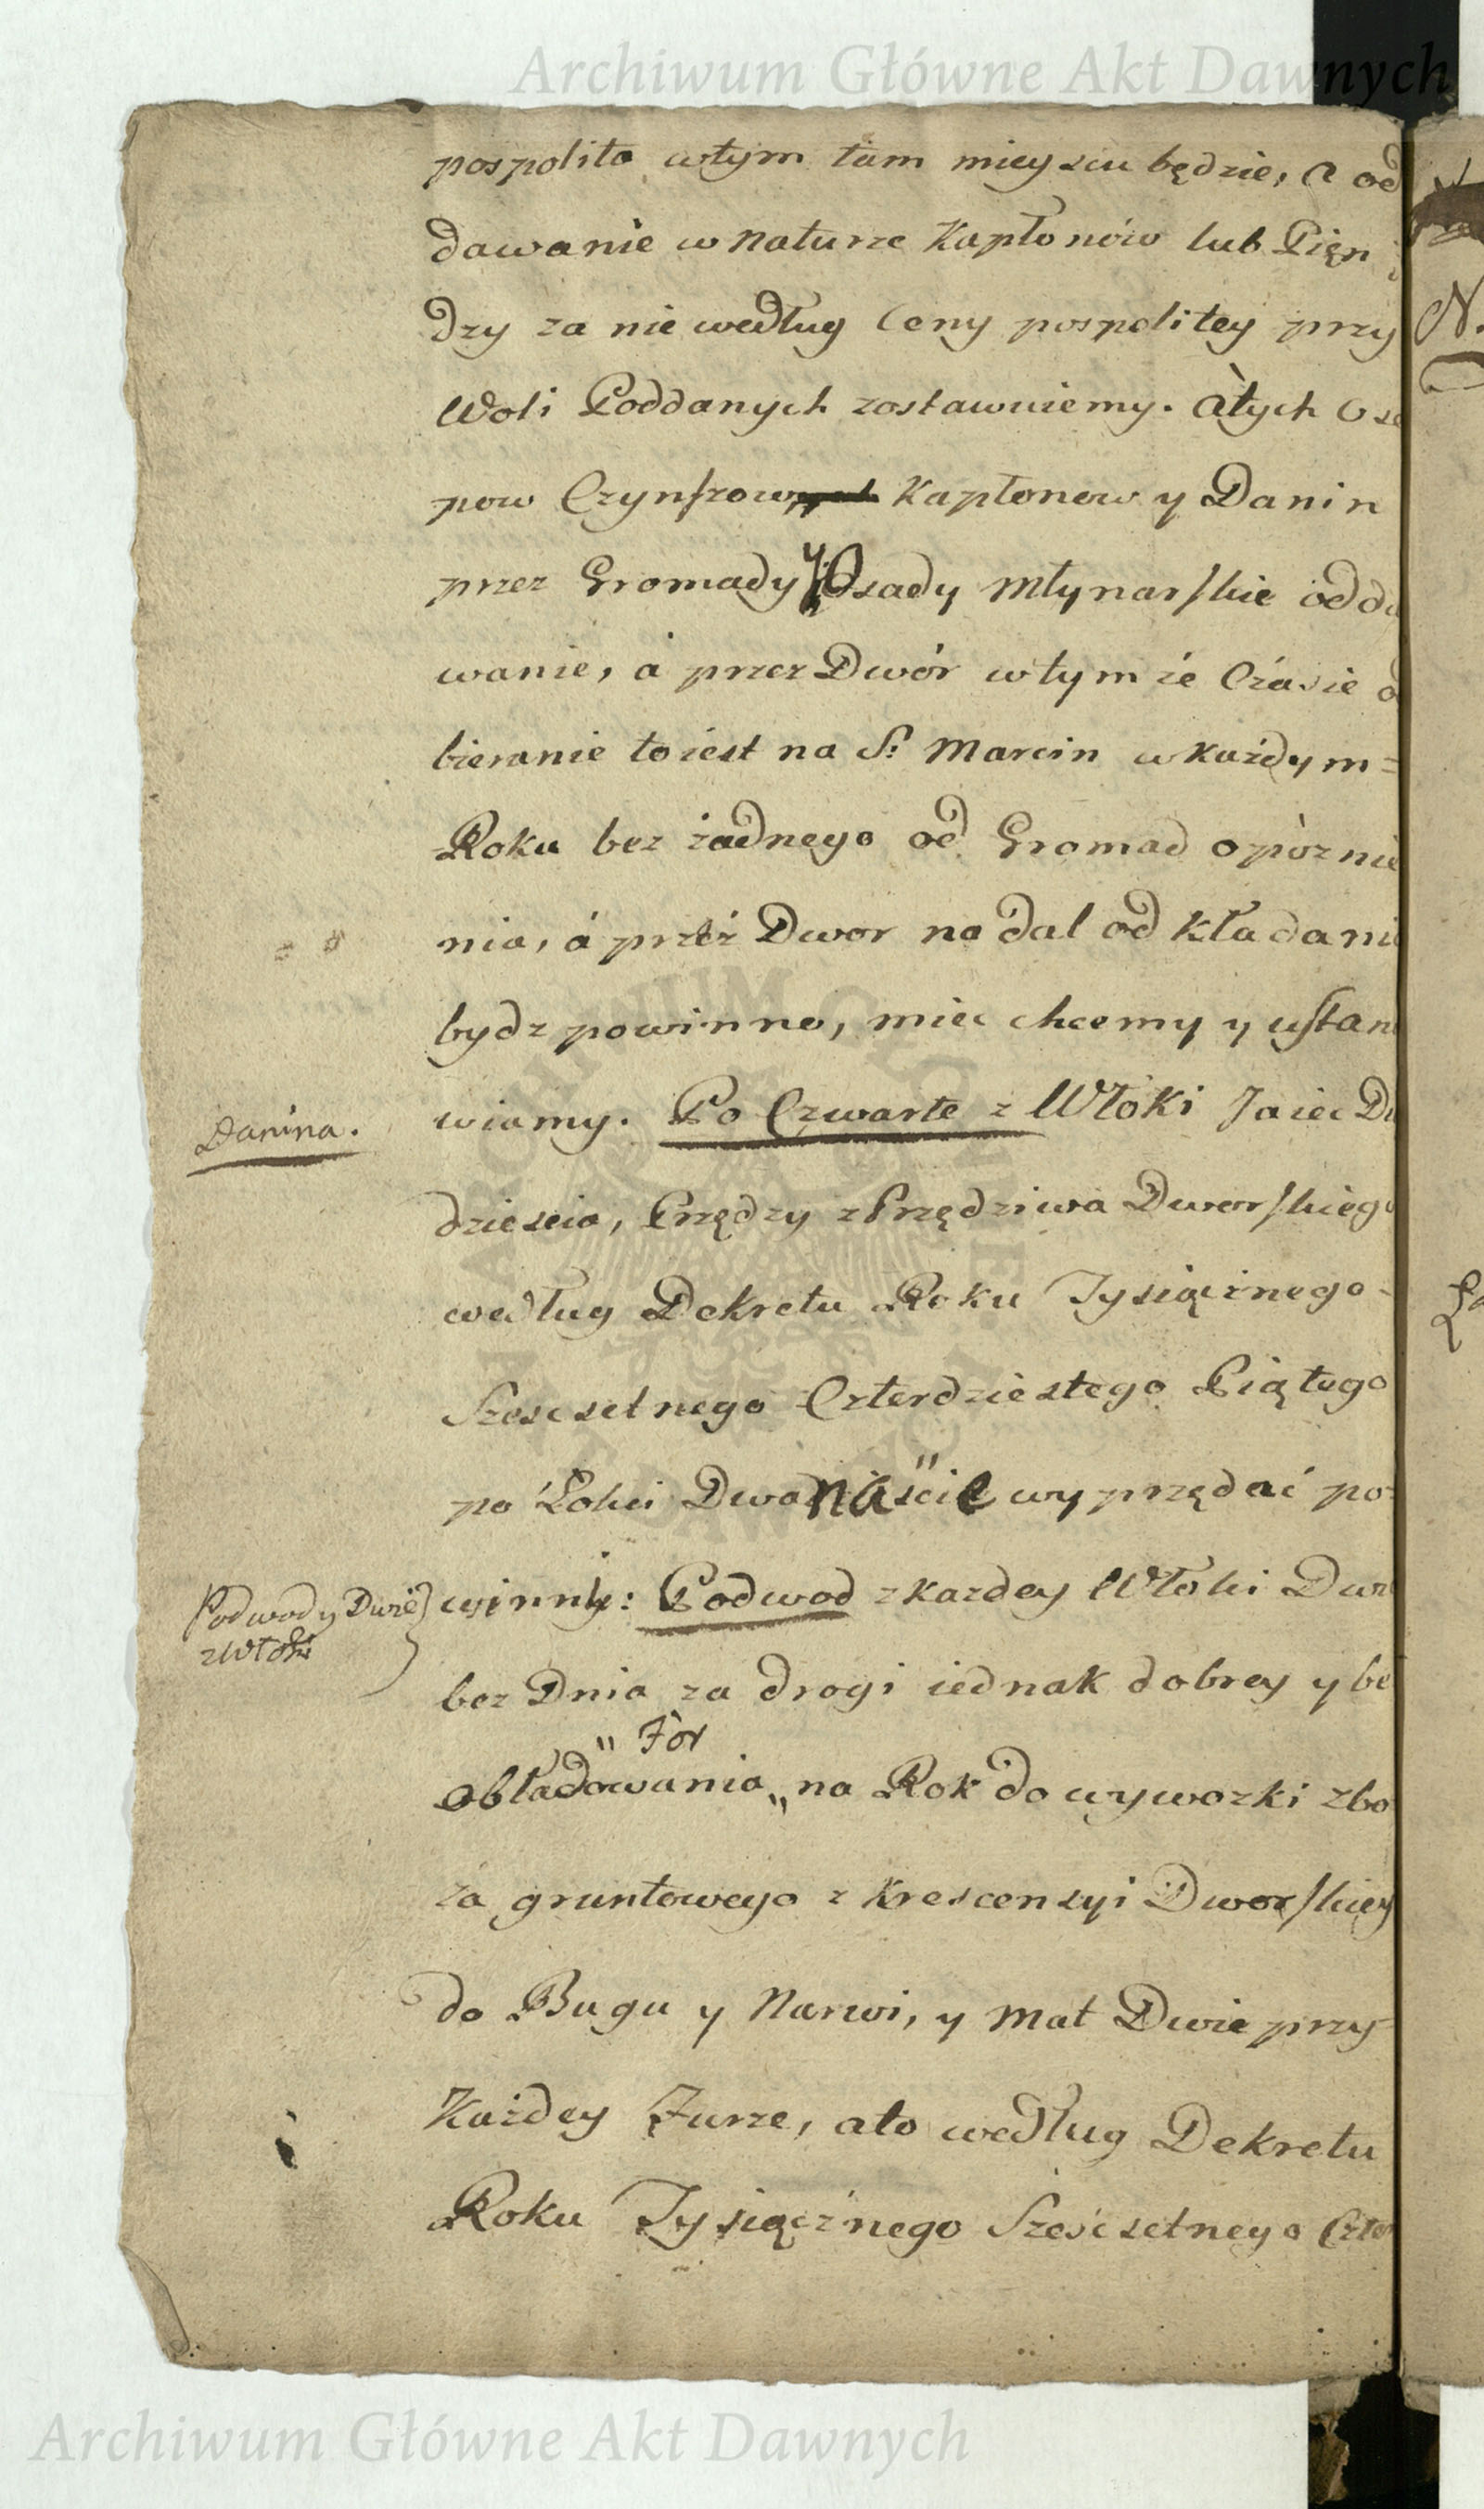 Archiwum Główne Akt Dawnych
pospolita wtym tam mieyscu będzie, a od
dawanie w naturze Kapłonów lub Pięn
dzy za nie według Ceny pospolitey przy
Woli Poddanych zostawuiemy. Atych Ose
pow Czynszow Kapłonow y Danin
przez Gromady y Osady Młynarskie odda
wanie, á przez Dwór wtymże Czasie o
bieranie toiest na S: Marcin w każdym=
Roku bez żadnego od Gromad opòznie
nia, á przéz Dwor na dal od kładania
bydz powinno, miec chcemy y ustano
Danina.
wiamy. Po Czwarte z Włoki Jaiec Dw
dziescia, Przędzy z Przędziwa Dworskiego
według Dekretu Roku Tysiącznego-
Szescsetnego Czterdziestego Piątego
po Łokci Dwanaście wyprzędać po-
Podwody Dwie
z Włoki
winni: Podwod z kazdey Włoki Dwie
bez Dnia za drogi iednak dobrey y be
" For
obładowania „ na Rok do wywozki zbo
za gruntowego z Krescensyi Dworskiey
do Bugu y Narwi, y Mat Dwie przy-
Każdey Furze, ato według Dekretu
Roku Tysiącznego Szescsetnego Czter
Archiwum Główne Akt Dawnych